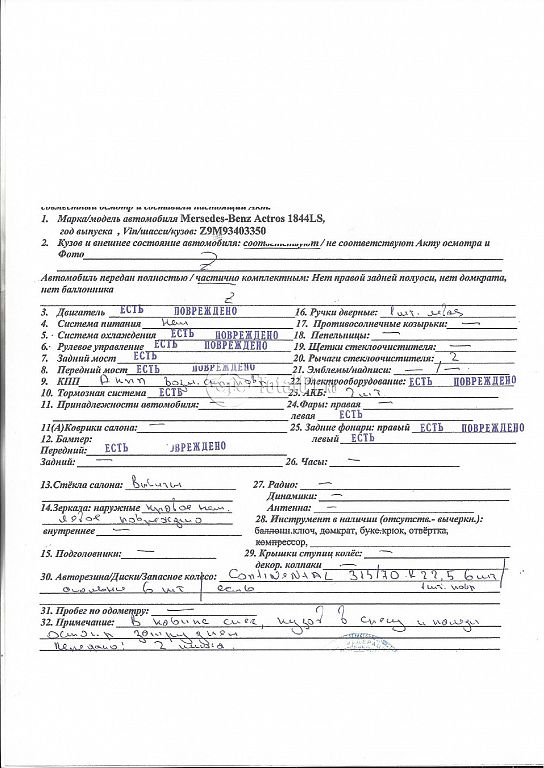 совместный осмотр и составили настоящий Акт.
1. Марка/модель автомобиля Mersedes-Benz Actros 1844LS,
год выпуска , Vin/шасси/кузов: Z9M93403350
2. Кузов и внешнее состояние автомобиля: соответствуют / не соответствуют Акту осмотра и
Фото
Автомобиль передан полностью / частично комплектным: Нет правой задней полуоси, нет домкрата,
нет баллонника
3. Двигатель ЕСТЬ ПОВРЕЖДЕНО 16. Ручки дверные: 1 шт.
4. Система питания нет 17. Противосолнечные козырьки: —
5. Система охлаждения ЕСТЬ ПОВРЕЖДЕНО 18. Пепельницы: —
6. Рулевое управление ЕСТЬ ПОВРЕЖДЕНО 19. Щетки стеклоочистителя: —
7. Задний мост ЕСТЬ 20. Рычаги стеклоочистителя: 2
8. Передний мост ЕСТЬ ПОВРЕЖДЕНО 21. Эмблемы/надписи: — / —
9. КПП АКПП 22. Электрооборудование: ЕСТЬ ПОВРЕЖДЕНО
10. Тормозная система ЕСТЬ 23. АКБ: 2 шт
11. Принадлежности автомобиля: — 24.Фары: правая —
левая ЕСТЬ
11(А)Коврики салона: — 25. Задние фонари: правый ЕСТЬ ПОВРЕЖДЕНО
12. Бампер: левый ЕСТЬ
Передний: ЕСТЬ ПОВРЕЖДЕНО
Задний: — 26. Часы: —
13.Стёкла салона: выбиты 27. Радио: —
Динамики: —
14.Зеркала: наружные правое нет. Антенна: —
левое повреждено 28. Инструмент в наличии (отсутств.- вычеркн.):
внутреннее — баллонн.ключ, домкрат, букс.крюк, отвёртка,
компрессор,
15. Подголовники: — 29. Крышки ступиц колёс: —
декор. колпаки —
30. Авторезина/Диски/Запасное колесо: Continental 315/70 R 22,5 6 шт/
6 шт / есть 1шт. повр
31. Пробег по одометру: —
32. Примечание: В кабине снег, кузов в снегу и
осмотр затруднен
Передано: 2